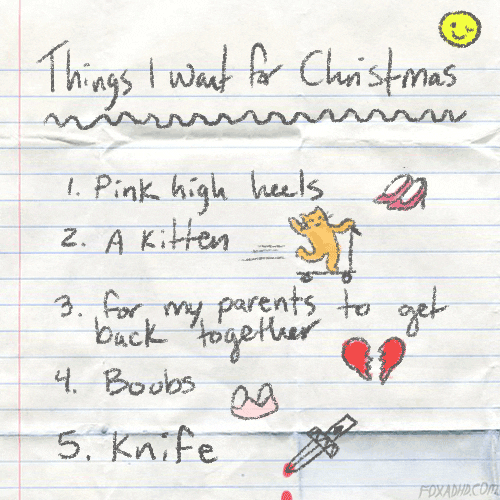 Things I want for Christmas
1. Pink high heels
2. A Kitten
3. for my parents to get
back together
4. Boobs
5. Knife
FOXADHD.COM